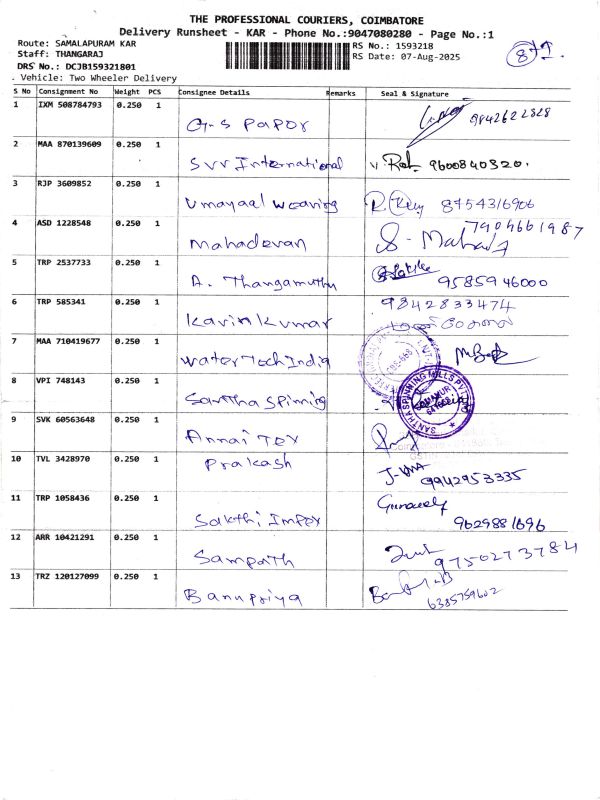 THE PROFESSIONAL COURIERS, COIMBATORE
Delivery Runsheet - KAR - Phone No.:9047080280 - Page No.:1
Route: SAMALAPURAM KAR
RS No.: 1593218
Staff: THANGARAJ
RS Date: 07-Aug-2025
DRS No.: DCJB159321801
Vehicle: Two Wheeler Delivery
S No Consignment No Weight PCS Consignee Details Remarks Seal & Signature
1 IXM 508784793 0.250 1
G-S Papor 9842622828
2 MAA 870139609 0.250 1
SVV International 9600840320.
3 RJP 3609852 0.250 1
Umayaal weaving 8754316906
4 ASD 1228548 0.250 1 7904661987
Mahadevan S-
5 TRP 2537733 0.250 1
A. Thangamuthu 9585946000
6 TRP 585341 0.250 1 9842833474
Kavin Kumar
7 MAA 710419677 0.250 1
Water Tech India
8 VPI 748143 0.250 1
Santha Spinning SANTHA SPINNING MILLS PVT LTD
9 SVK 60563648 0.250 1
Annai Tex
10 TVL 3428970 0.250 1
Prakash 9942953335
11 TRP 1058436 0.250 1
Sakthi Impex 9629881696
12 ARR 10421291 0.250 1
Sampath 9750273784
13 TRZ 120127099 0.250 1
Banupriya 6385759602